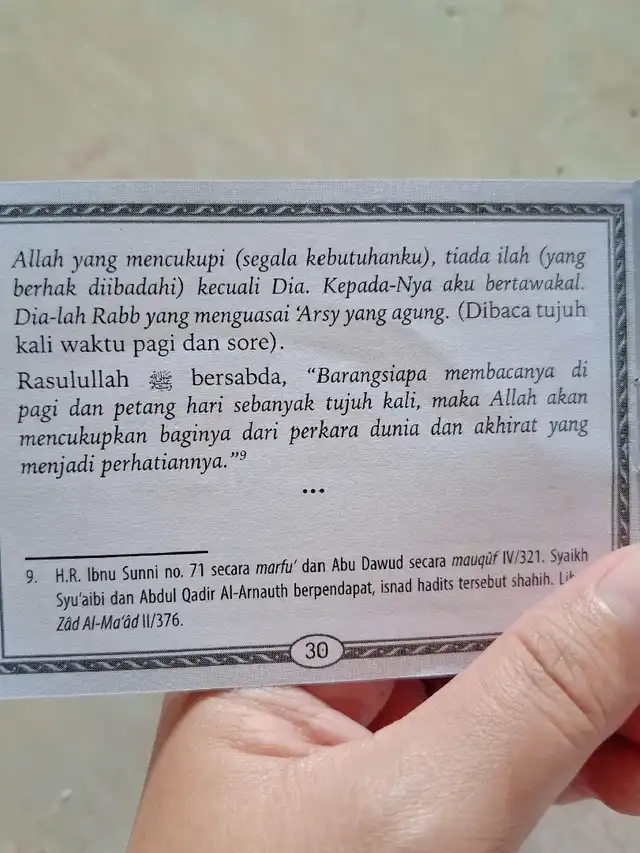 Allah yang mencukupi (segala kebutuhanku), tiada ilah (yang
berhak diibadahi) kecuali Dia. Kepada-Nya aku bertawakal.
Dia-lah Rabb yang menguasai ‘Arsy yang agung. (Dibaca tujuh
kali waktu pagi dan sore).
Rasulullah ﷺ bersabda, “Barangsiapa membacanya di
pagi dan petang hari sebanyak tujuh kali, maka Allah akan
mencukupkan baginya dari perkara dunia dan akhirat yang
menjadi perhatiannya.”⁹
...
9. H.R. Ibnu Sunni no. 71 secara marfu’ dan Abu Dawud secara mauqûf IV/321. Syaikh
Syu’aibi dan Abdul Qadir Al-Arnauth berpendapat, isnad hadits tersebut shahih.
Zâd Al-Ma’âd II/376.
30